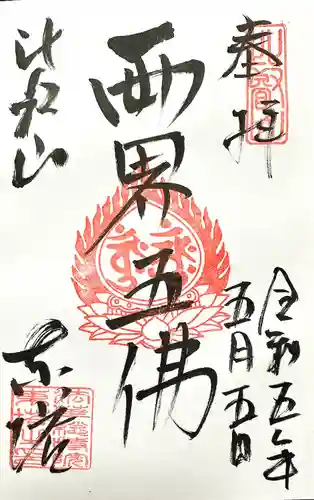 奉拝
令和五年
五月五日
両界五佛
比叡山
東塔